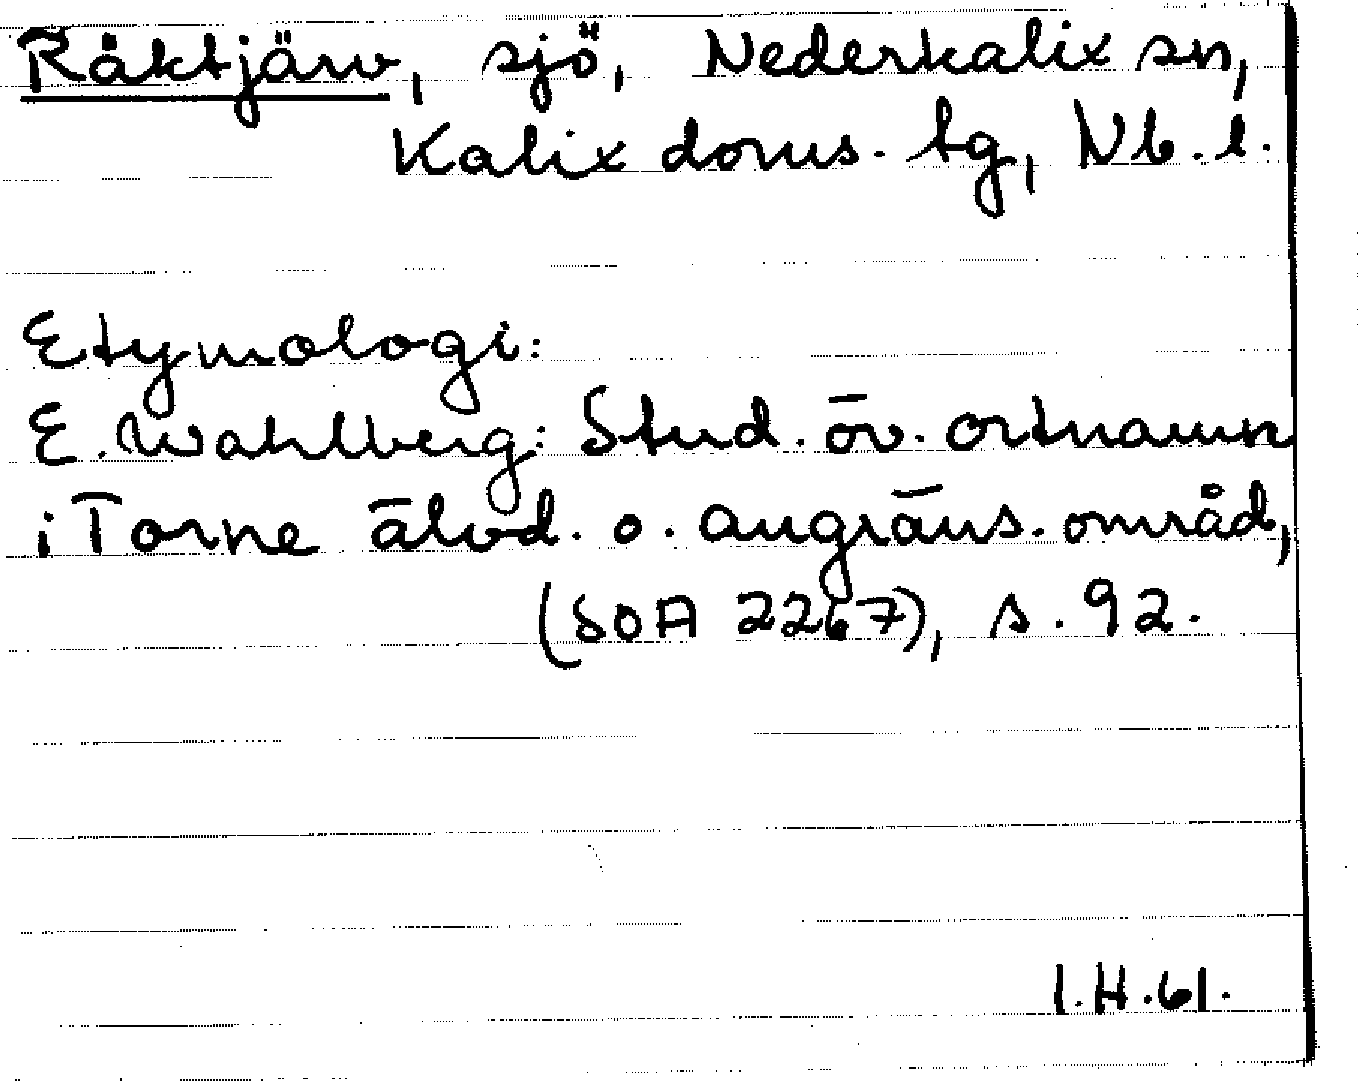 Räktjärv, sjö, Nederkalix sn,
Kalix doms. tg, Nb. l.
Etymologi:
E. Wahlberg: Stud. öv. ortnamn
i Torne älvd. o. angräns. områd,
(SOA 2267), s. 92.
I.H.61.